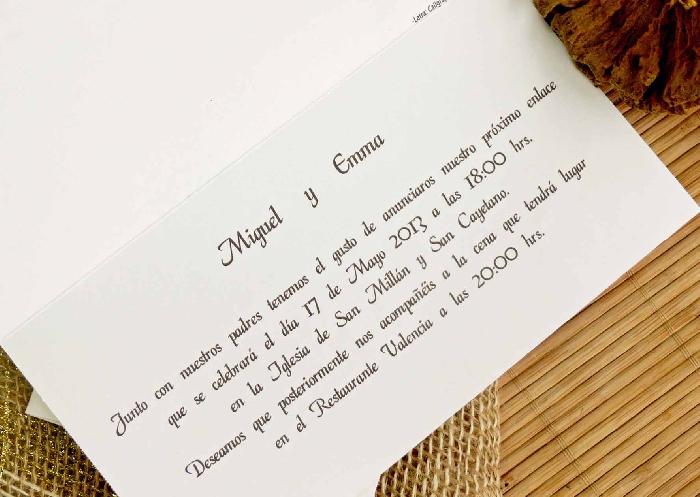 Letra: 
Miguel y Emma
Junto con nuestros padres tenemos el gusto de anunciaros nuestro próximo enlace
que se celebrará el día 17 de Mayo 2013 a las 18:00 hrs.
en la Iglesia de San Millán y San Cayetano.
Deseamos que posteriormente nos acompañéis a la cena que tendrá lugar
en el Restaurante Valencia a las 20:00 hrs.